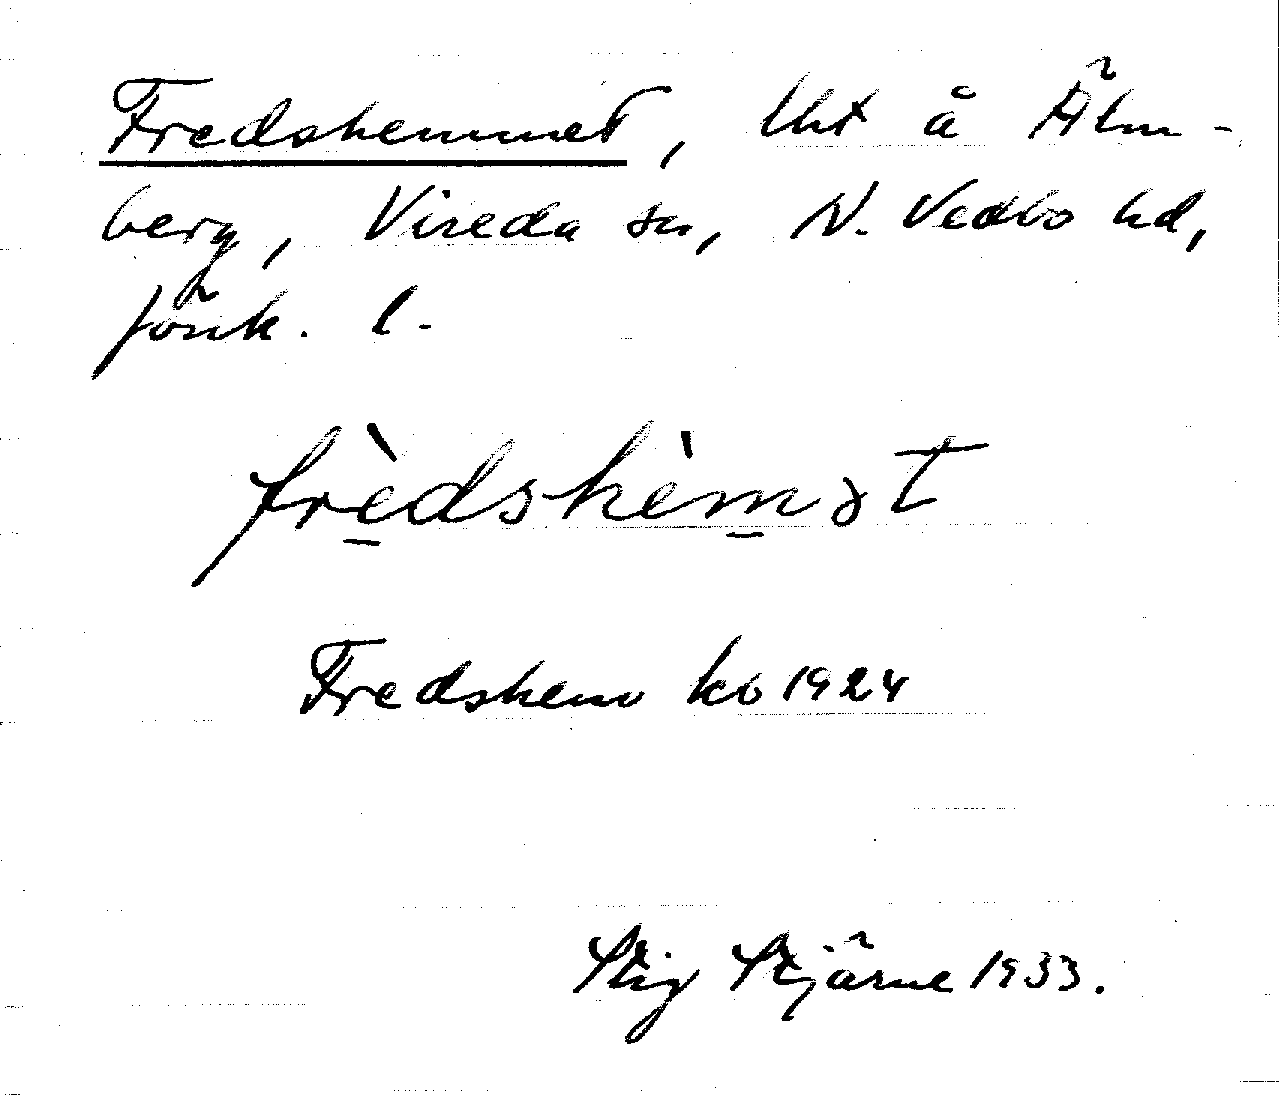 Fredshemmet, lht å Älm-
berg, Vireda sn, N. Vedbo hd,
Jönk. l.
frèdshèmət
Fredshem kb 1924
Stig Stjärne 1933.